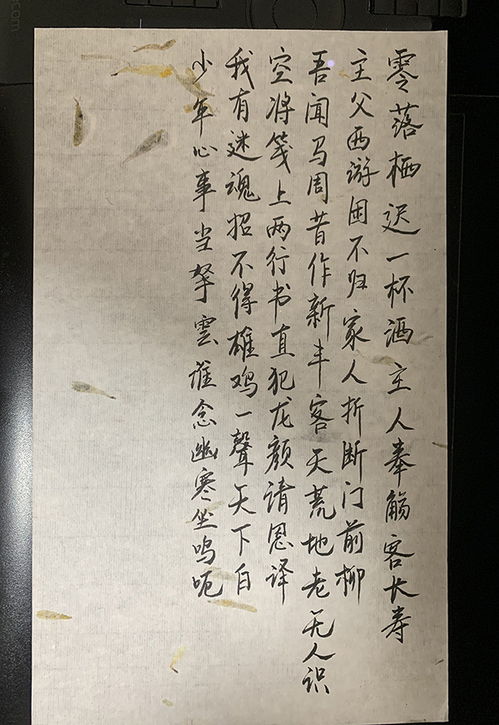 零落栖迟一杯酒主人奉觞客长寿
主父西游困不归家人折断门前柳
吾闻马周昔作新丰客天荒地老无人识
空将笺上两行书直犯龙颜请恩译
我有迷魂招不得雄鸡一聲天下白
少年心事当拏雲谁念幽寒坐呜呃